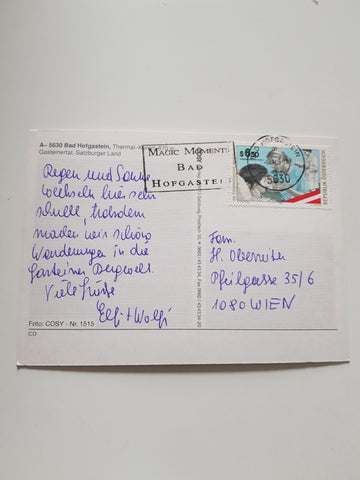 A– 5630 Bad Hofgastein, Thermal-
Gasteinertal, Salzburger Land
MAGIC MOMENTS
BAD
HOFGASTEIN
S 6.50
5630
REPUBLIK ÖSTERREICH
Regen und Sonne
wechseln hier sehr
schnell, trotzdem
machen wir schöne
Wanderungen in die
Gasteiner Bergwelt.
Viele Grüsse
Elfi + Wolfi
Fam.
H. Oberreiter
Pfeilgasse 35/6
1080 WIEN
Foto: COSY - Nr. 1515
CO